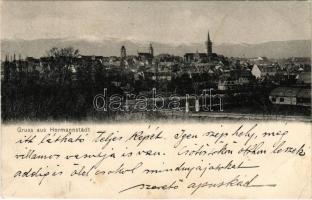 Gruss aus Hermannstadt
darabanth
itt látható teljes képét. Igen szép hely, még
villamos vasutja is van. Csötörtökön otthon leszek
addig is ölel csókol mindnyájatokat
szerető apuskád